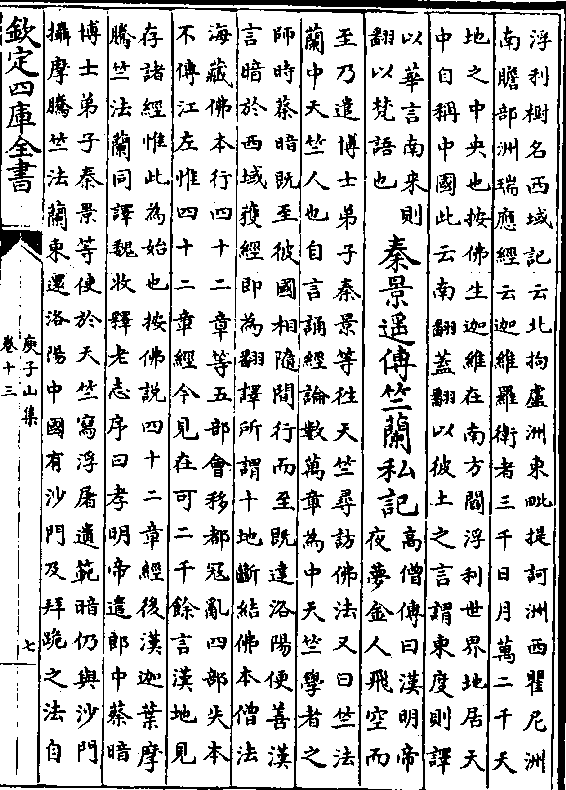 浮利樹名西域記云北拘盧洲東毗提訶洲西瞿尼洲
南贍部洲瑞應經云迦維羅衛者三千日月萬二千天
地之中央也按佛生迦維在南方閻浮利世界地居天
中自稱中國此云南翻蓋翻以彼土之言謂東度則譯
以華言南來則
翻以梵語也
秦景遥傳竺蘭私記
高僧傳曰漢明帝
夜夢金人飛空而
至乃遣博士弟子秦景等往天竺尋訪佛法又曰竺法
蘭中天竺人也自言誦經論數萬章為中天竺學者之
師時蔡暗既至彼國相隨間行而至既達洛陽便善漢
言暗於西域獲經即為翻譯所謂十地斷結佛本僧法
海藏佛本行四十二章等五部會移都冦亂四部失本
不傳江左惟四十二章經今見在可二千餘言漢地見
存諸經惟此為始也按佛說四十二章經後漢迦葉摩
騰竺法蘭同譯魏收釋老志序曰孝明帝遣郎中蔡暗
博士弟子秦景等使於天竺寫浮屠遺範暗仍與沙門
攝摩騰竺法蘭東還洛陽中國有沙門及拜跪之法自
欽定四庫全書
庾子山集
卷十三
七